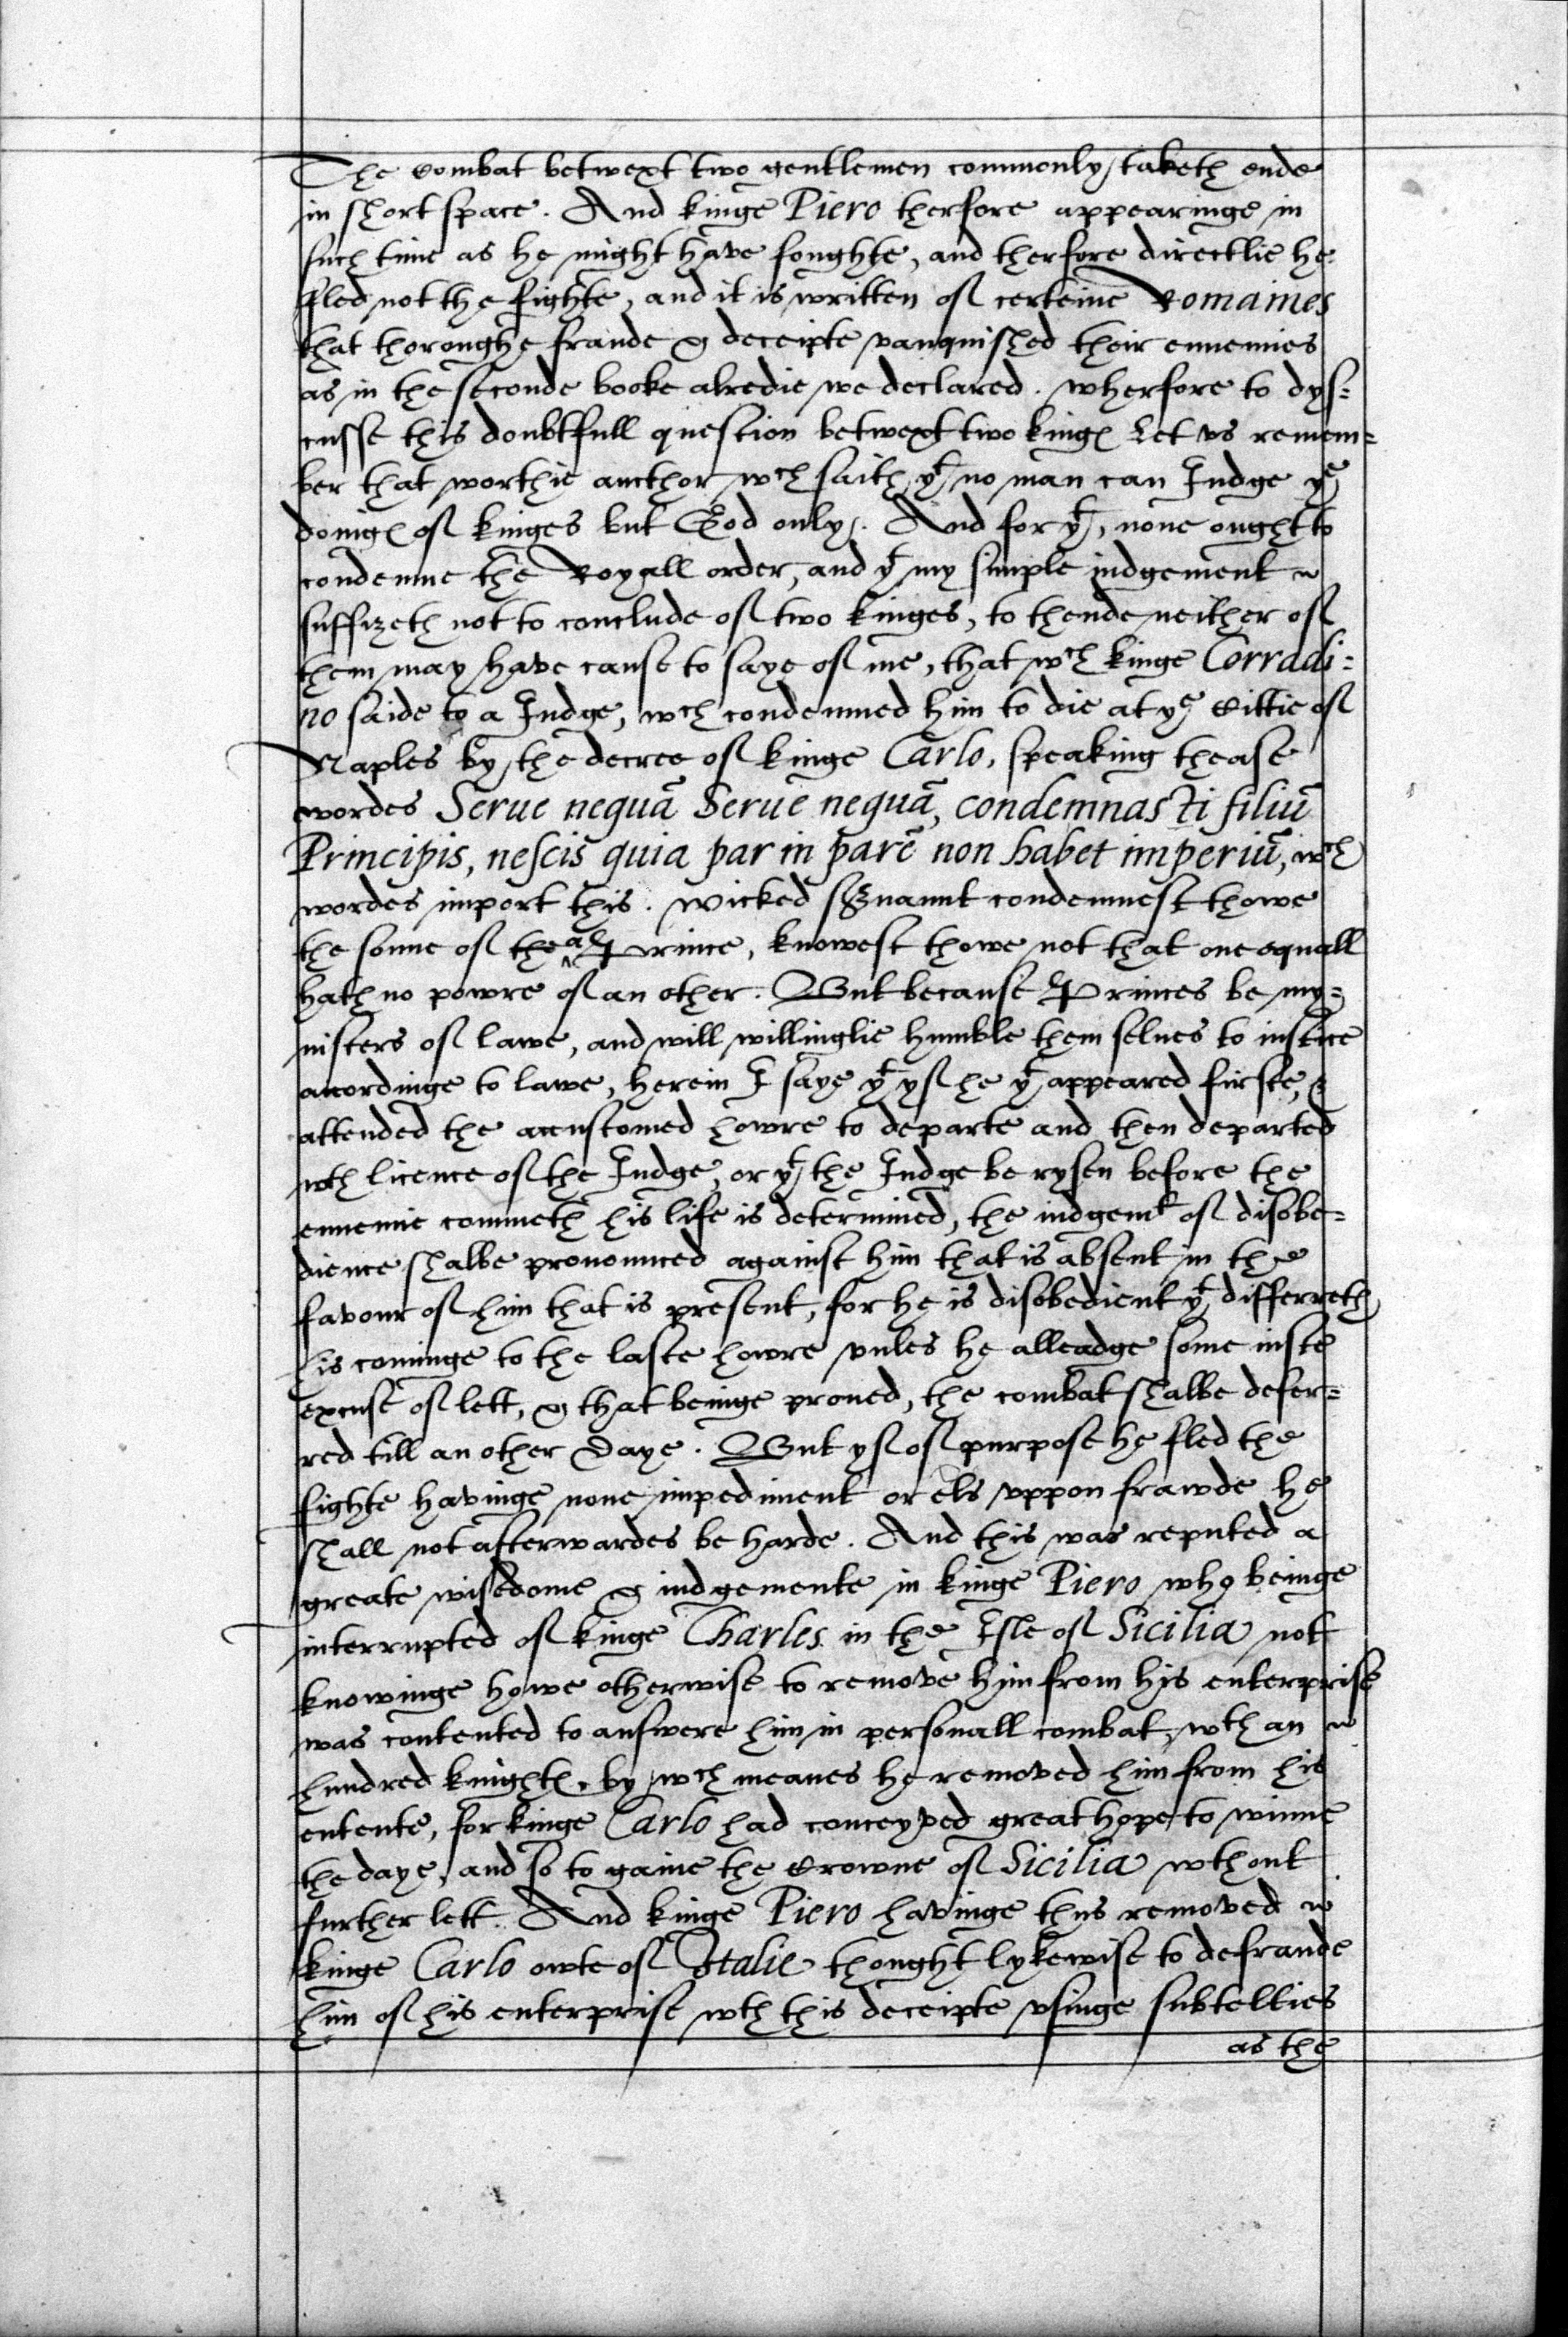 The Combat betwext two gentlemen commonly taketh ende
in short space. And kinge Piero therfore appearinge in
such time as he might have foughte, and therfore directlie he
fled not the fighte, and it is written of certeine Romaines
that thoroughe fraude & deceipte vanquished their ennemies
as in the seconde booke alredie we declared. wherfore to dys=
cusse this doubtfull question betwext two kinges Let vs remem=
ber that worthie aucthor wch saith yt no man can Iudge ye
doinges of kinges but God only. And for yt, none ought to
condemne the Royall order, and yt my simple iudgement
suffizeth not to conclude of two kinges, to thende neither of
them may have cause to saye of me, that wch kinge Corradi=
no saide to a Iudge, wch condemned him to die at ye Cittie of
Naples by the decree of kinge Carlo, speaking thease
wordes Serue nequã Serue nequã, condemnasti filiũ
Principis, nescis quia par in parẽ non habet imperiũ, wch
wordes import this. wicked servaunt condemnest thowe
the sonne of the a Prince, knowest thowe not that one equall
hath no powre of an other. But because Princes be my=
nisters of lawe, and will willinglie humble them selues to iustice
accordinge to lawe, herein I saye yt yf he yt appeared firste, &
attended the accustomed howre to departe and then departed
wth licence of the Iudge, or yt the Iudge be rysen before the
ennemie commeth his life is determined, the iudgemt of disobe=
dience shalbe pronounced against him that is absent in the
favour of him that is present, for he is disobedient yt differreth
his cominge to the laste howre vnles he alleadge some iuste
excuse of lett, & that beinge proued, the combat shalbe defer=
red till an other Daye. But yf of purpose he fled the
fighte havinge none impediment or els vppon frawde he
shall not afterwardes be harde. And this was reputed a
greate wisedome & iudgemente in kinge Piero who beinge
interrupted of kinge Charles in the Isle of Sicilia not
knowinge howe otherwise to remove him from his enterprise
was contented to answere him in personall combat, wth an
hundred knightes, by wch meanes he removed him from his
entente, for kinge Carlo had conceyved great hope to winne
the daye, and so to gaine the Crowne of Sicilia wthout
further lett. And kinge Piero havinge thus removed
kinge Carlo owte of Italie thought lykewise to defraude
him of his enterprise wth this deceipte vsinge subtelties
as the